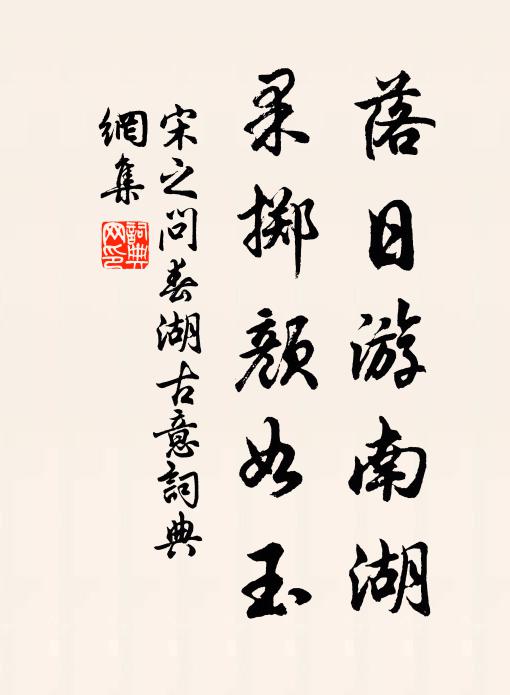 落日游南湖
果擲顏如玉
宋之問春湖古意詞典
網集
詞典
网印